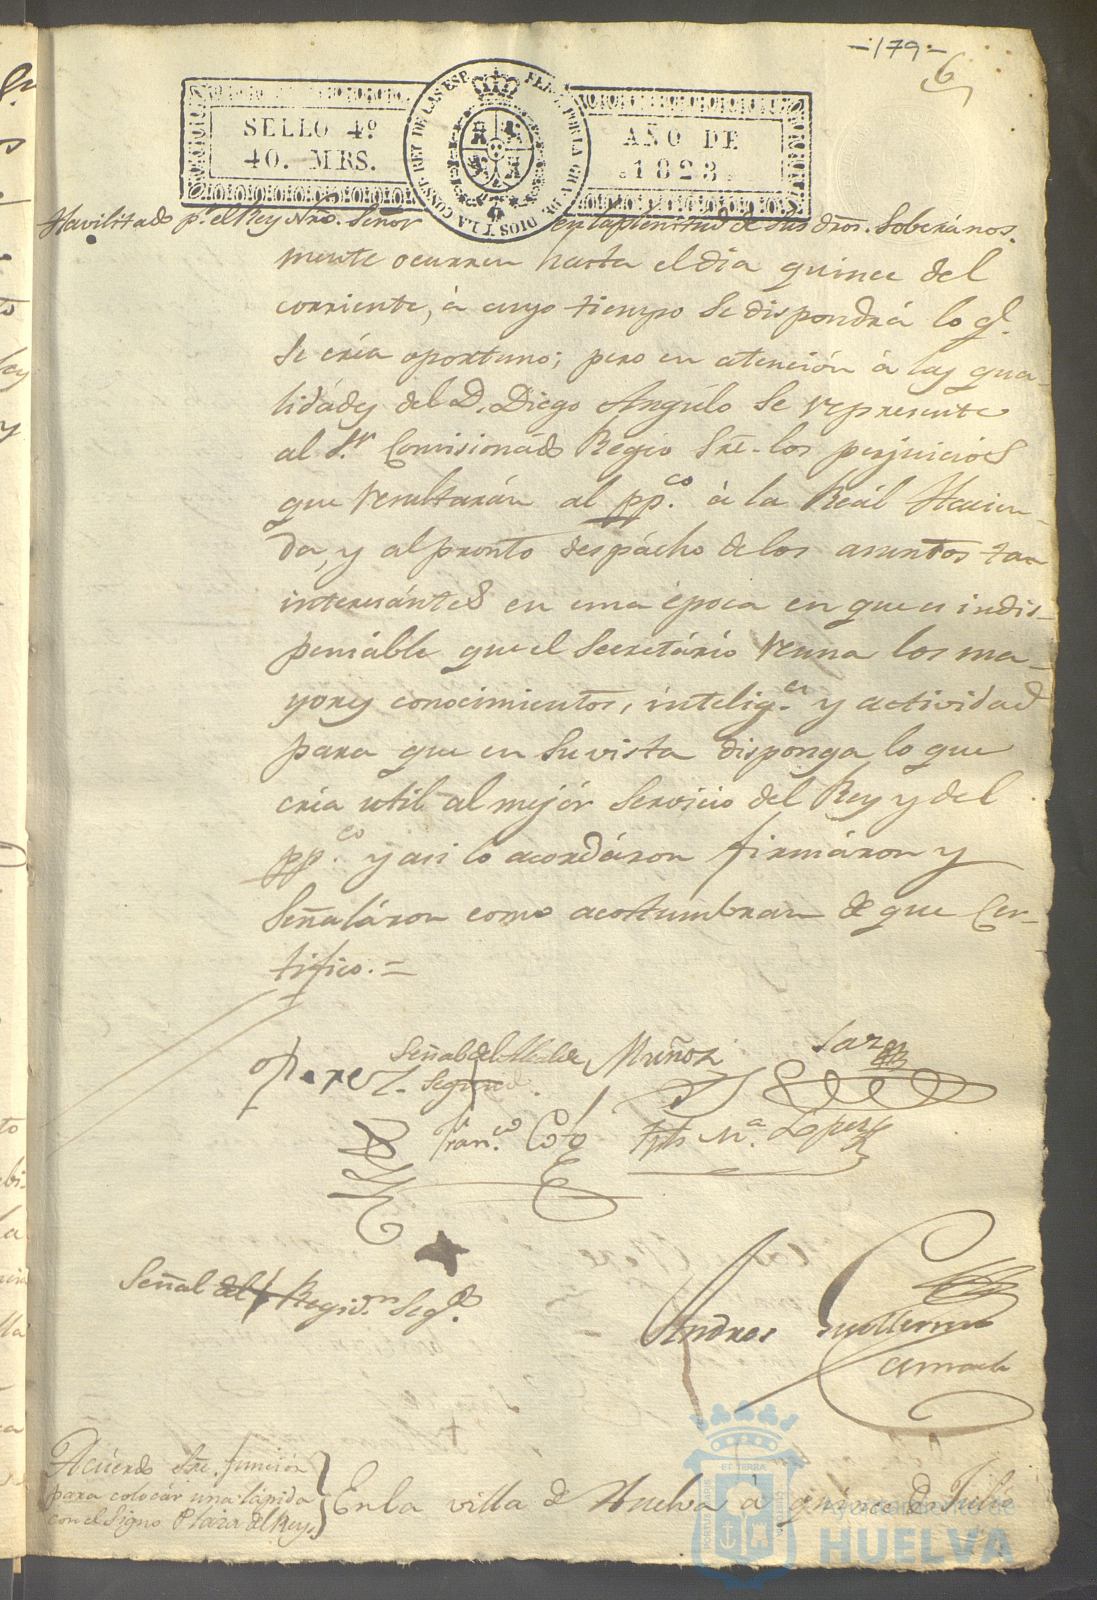 -179-
6
SELLO 4º
40. MRS.
FERN. 7 POR LA GRA. DE DIOS Y LA CONST. REY DE LAS ESP.
AÑO DE
1823.
Havilitado pr. el Rey Nro. Señor en la plenitud de sus dros. Soberanos.
mente ocurren hasta el dia quince del
corriente, á cuyo tiempo se dispondrá lo q.
se créa oportuno; pero en atención á las qua-
lidádes del D. Diego Angúlo se represente
al Sr. Comisionádo Régio sre. los perjuicios
que resultarán al ppco. á la Reál Hacien-
da, y al pronto despácho de los asuntos tan
interesántes en una época en que es indis-
pensáble que el Secretário reuna los ma-
yores conocimientos, inteligcia. y actividad
para que en su vista disponga lo que
créa util al mejór servicio del Rey y del
ppco. y asi lo acordáron firmáron y
señaláron como acostumbran de que Cer-
tifico.=
Perez.
Señal del Alcalde
Segundo.
Muñoz
Franco. Coto
Ma. Lopez
Señal del Regidor. Segdo.
Andres Guillermo
Camacho
Acuerdo sre. función
para colocár una lápida
con el signo Plaza del Rey
En la villa de Huelva á quince de Julio
ET TERRA
Ayuntamiento de
HUELVA